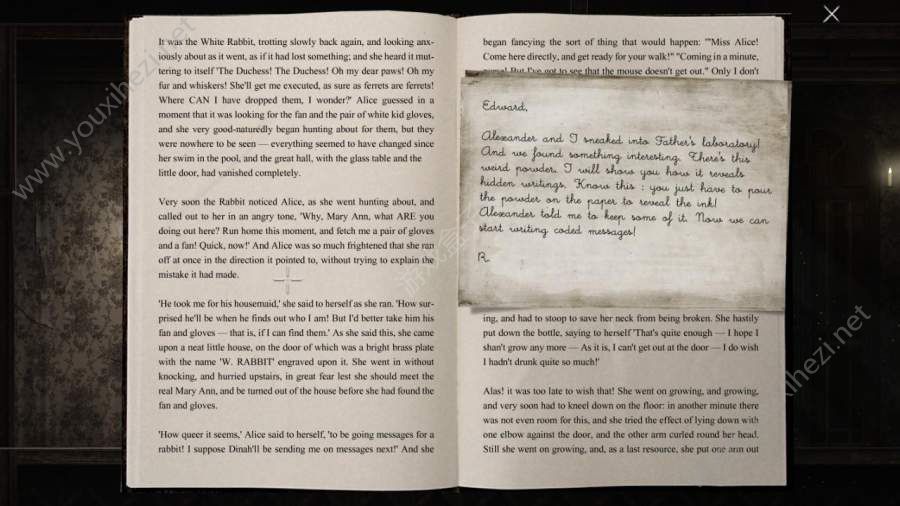 It was the White Rabbit, trotting slowly back again, and looking anx-
iously about as it went, as if it had lost something; and she heard it mut-
tering to itself 'The Duchess! The Duchess! Oh my dear paws! Oh my
fur and whiskers! She'll get me executed, as sure as ferrets are ferrets!
Where CAN I have dropped them, I wonder?' Alice guessed in a
moment that it was looking for the fan and the pair of white kid gloves,
and she very good-naturedly began hunting about for them, but they
were nowhere to be seen — everything seemed to have changed since
her swim in the pool, and the great hall, with the glass table and the
little door, had vanished completely.
Very soon the Rabbit noticed Alice, as she went hunting about, and
called out to her in an angry tone, 'Why, Mary Ann, what ARE you
doing out here? Run home this moment, and fetch me a pair of gloves
and a fan! Quick, now!' And Alice was so much frightened that she ran
off at once in the direction it pointed to, without trying to explain the
mistake it had made.
'He took me for his housemaid,' she said to herself as she ran. 'How sur-
prised he'll be when he finds out who I am! But I'd better take him his
fan and gloves — that is, if I can find them.' As she said this, she came
upon a neat little house, on the door of which was a bright brass plate
with the name 'W. RABBIT' engraved upon it. She went in without
knocking, and hurried upstairs, in great fear lest she should meet the
real Mary Ann, and be turned out of the house before she had found the
fan and gloves.
'How queer it seems,' Alice said to herself, 'to be going messages for a
rabbit! I suppose Dinah'll be sending me on messages next!' And she
began fancying the sort of thing that would happen: '"Miss Alice!
Come here directly, and get ready for your walk!" "Coming in a minute,
But I've got to see that the mouse doesn't get out." Only I don't
Edward,
Alexander and I sneaked into Father's laboratory!
And we found something interesting. There's this
weird powder. I will show you how it reveals
hidden writings. Know this : you just have to pour
the powder on the paper to reveal the ink!
Alexander told me to keep some of it. Now we can
start writing coded messages!
R.
ing, and had to stoop to save her neck from being broken. She hastily
put down the bottle, saying to herself 'That's quite enough — I hope I
shan't grow any more — As it is, I can't get out at the door — I do wish
I hadn't drunk quite so much!'
Alas! it was too late to wish that! She went on growing, and growing,
and very soon had to kneel down on the floor: in another minute there
was not even room for this, and she tried the effect of lying down with
one elbow against the door, and the other arm curled round her head.
Still she went on growing, and, as a last resource, she put one arm out
www.youxihezi.net